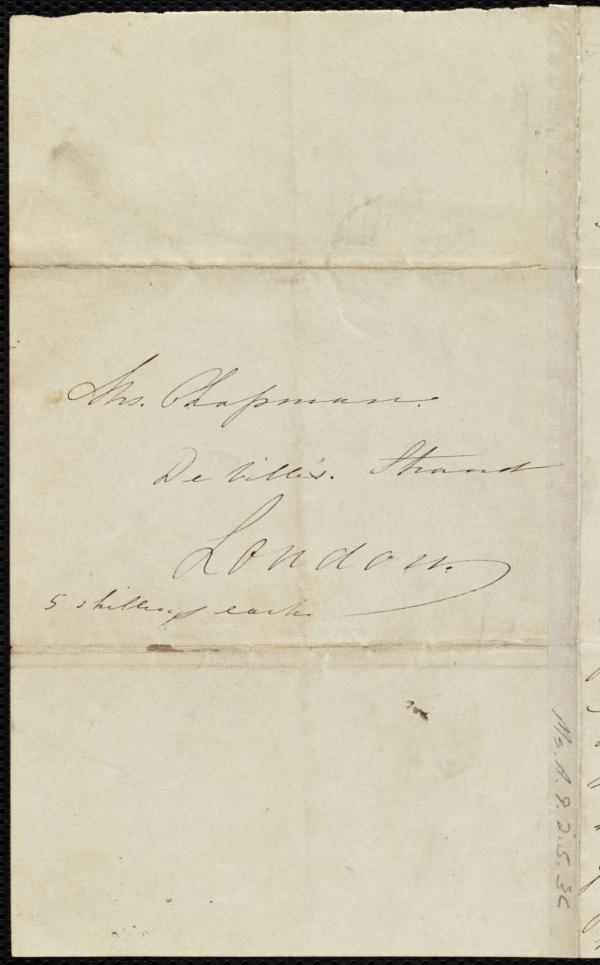 Mrs. Chapman.
De Ville's. Strand
London.
5 shillings each.
Ms. A. 9. 2. 5. 36